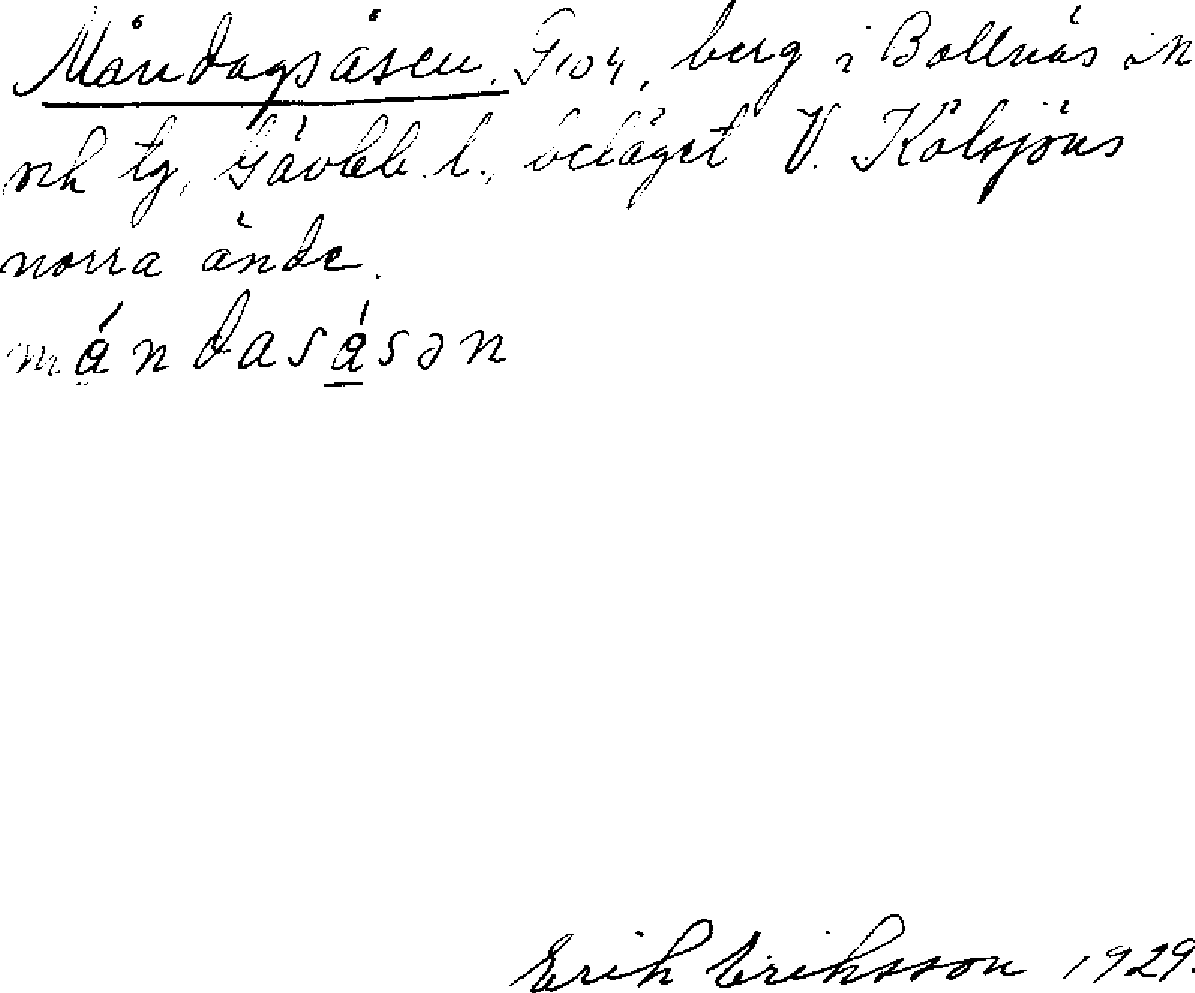 Måndagsåsen. F 104, berg i Bollnäs sn
och tg, Gävleb. l., beläget V. Kölsjöns
norra ände.
mándasásən
Erik Eriksson 1929.